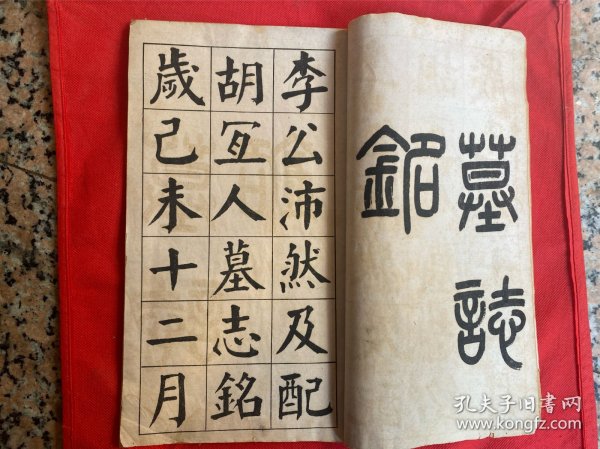 墓誌
銘
李公沛然及配
胡冝人墓志銘
歲己未十二月
孔夫子旧書网
www.kongfz.com